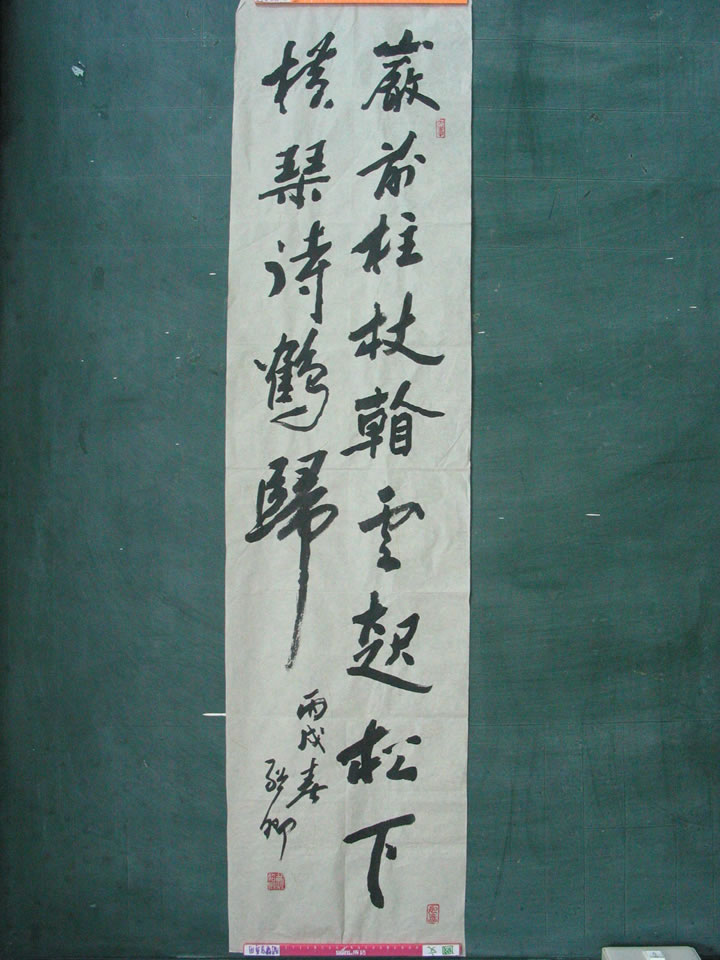 巖前柱杖看雲起松下
橫琴待鶴歸
丙戌春
卿